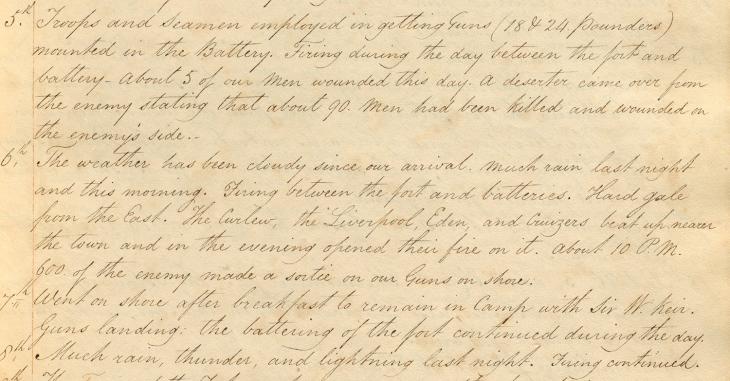 5th. Troops and Seamen employed in getting Guns (18 & 24. Pounders)
mounted in the Battery. Firing during the day between the fort and
battery - About 5 of our Men wounded this day. A deserter came over from
the enemy stating that about 90. Men had been killed and wounded on
the enemy's side. -
6th. The weather has been cloudy since our arrival. Much rain last night
and this morning. Firing between the fort and batteries. Hard gale
from the East. The Curlew, the Liverpool, Eden, and Cruizers beat up nearer
the town and in the evening opened their fire on it. About 10 P.M.
600. of the enemy made a sortie on our Guns on shore.
7th Went on shore after breakfast to remain in Camp with Sir W. Keir.
Guns landing: the battering of the fort continued during the day.
8th Much rain, thunder, and lightning last night. Firing continued.